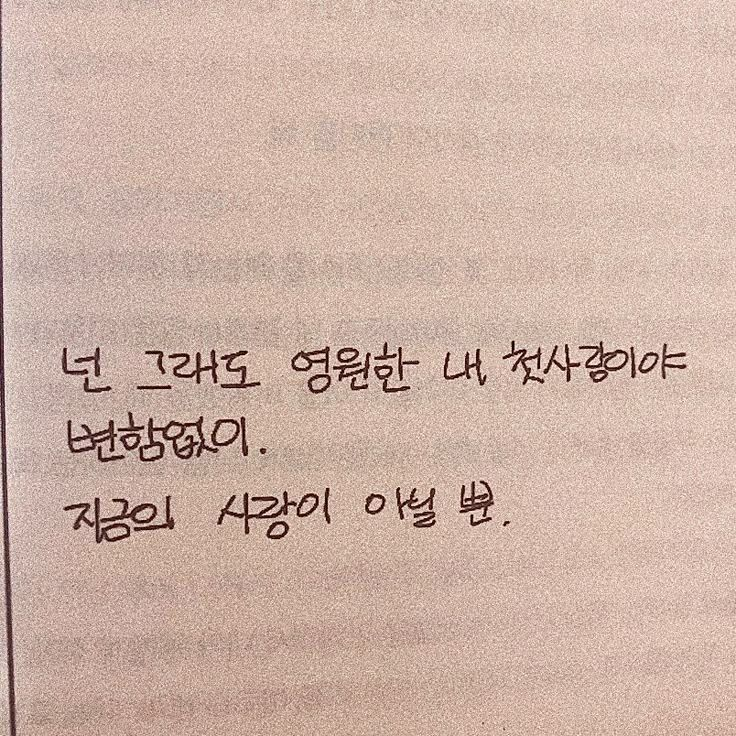 넌 그래도 영원한 내 첫사랑이야
변함없이.
지금의 사랑이 아닐 뿐.